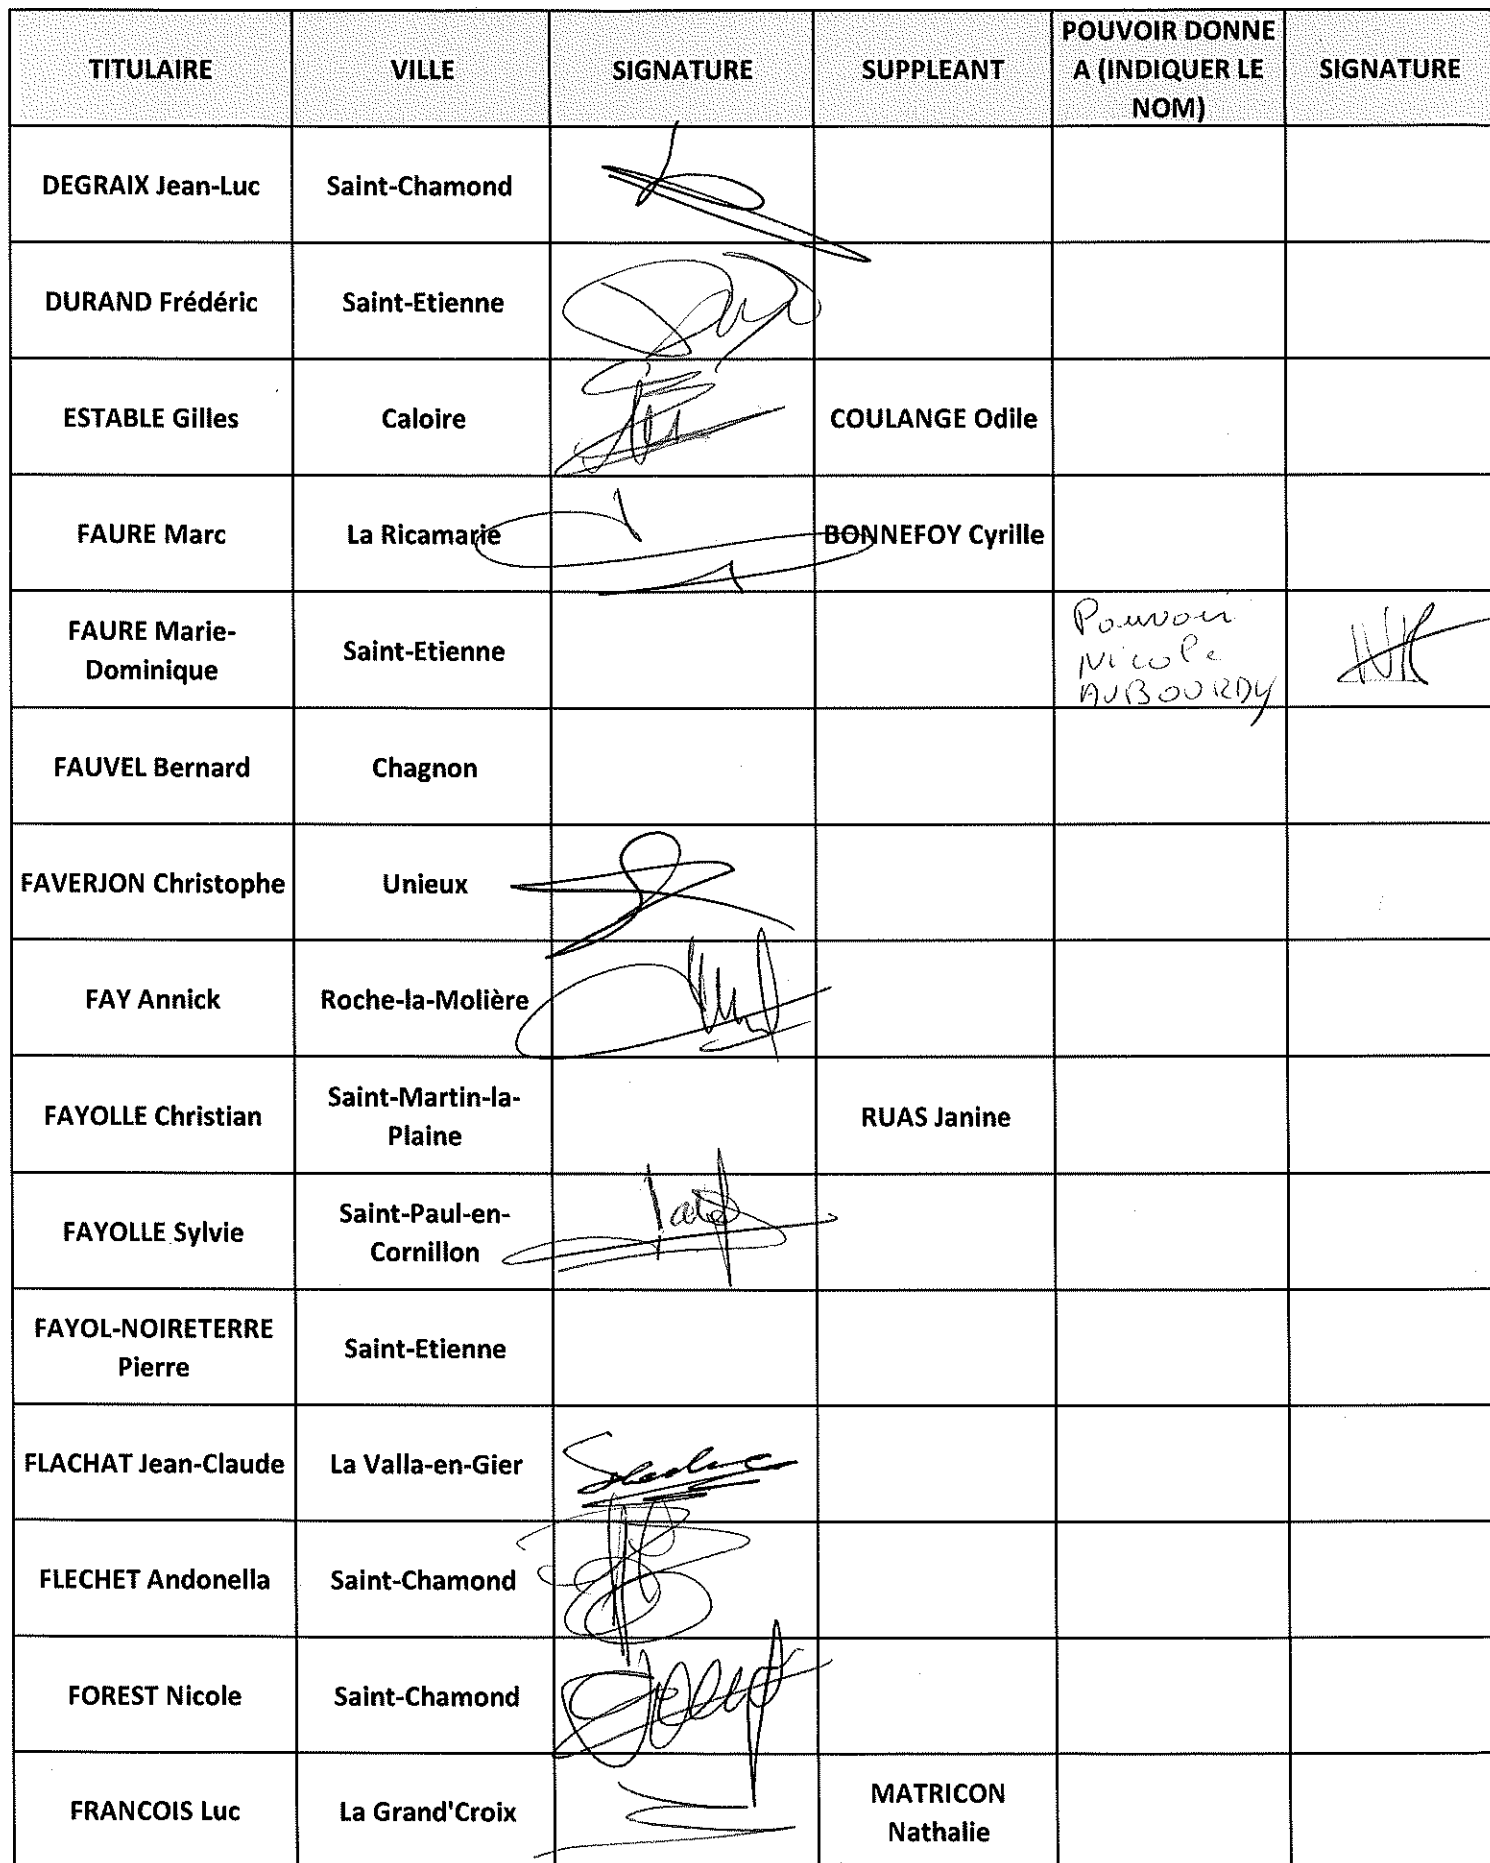 TITULAIRE
VILLE
SIGNATURE
SUPPLEANT
POUVOIR DONNE
A (INDIQUER LE
NOM)
SIGNATURE
DEGRAIX Jean-Luc
Saint-Chamond
DURAND Frédéric
Saint-Etienne
ESTABLE Gilles
Caloire
COULANGE Odile
FAURE Marc
La Ricamarie
BONNEFOY Cyrille
FAURE Marie-
Dominique
Saint-Etienne
Pouvoir
Nicole
AUBOURDY
FAUVEL Bernard
Chagnon
FAVERJON Christophe
Unieux
FAY Annick
Roche-la-Molière
FAYOLLE Christian
Saint-Martin-la-
Plaine
RUAS Janine
FAYOLLE Sylvie
Saint-Paul-en-
Cornillon
FAYOL-NOIRETERRE
Pierre
Saint-Etienne
FLACHAT Jean-Claude
La Valla-en-Gier
FLECHET Andonella
Saint-Chamond
FOREST Nicole
Saint-Chamond
FRANCOIS Luc
La Grand'Croix
MATRICON
Nathalie